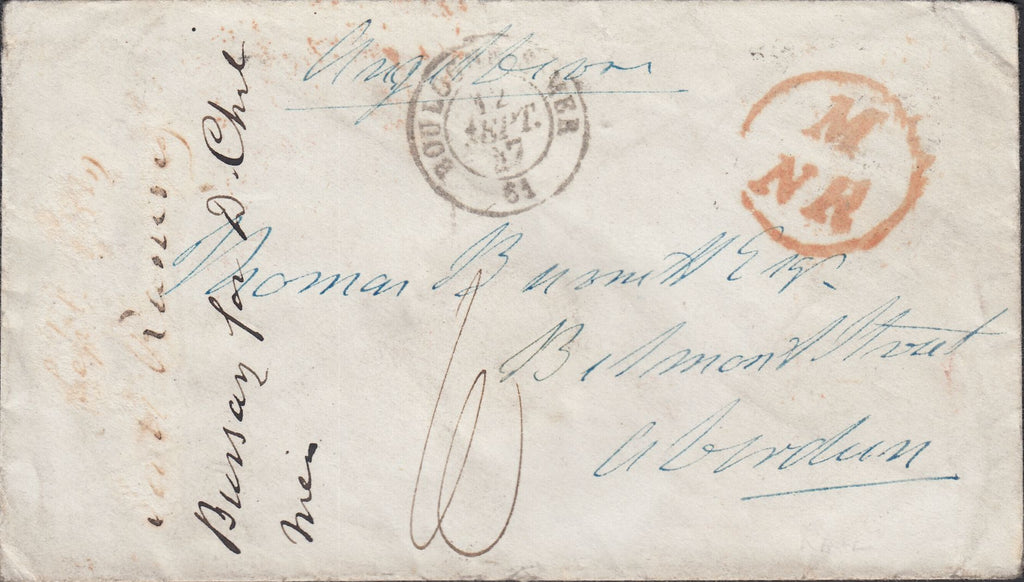 Angleterre
BOULOGNE MER
12
SEPT.
57
61
M
NR
Thomas Burnett Esqr.
Belmont Street
Aberdeen
6
Bursary for D. Chal
mers